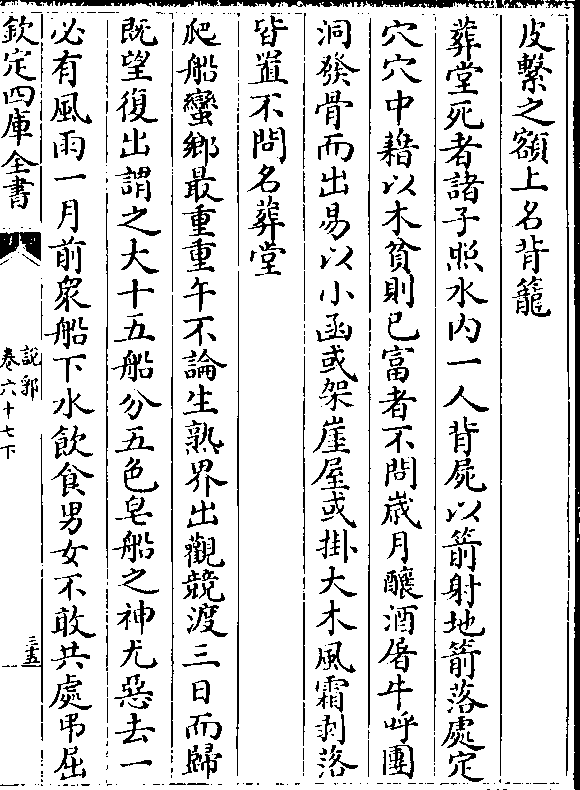 皮繫之額上名背籠
葬堂死者諸子照水内一人背屍以箭射地箭落處定
穴穴中藉以木貧則已富者不問嵗月釀酒屠牛呼團
洞發骨而出易以小函或架崖屋或掛大木風霜剥落
皆置不問名葬堂
爬船蠻鄉最重重午不論生熟界出觀競渡三日而歸
既望復出謂之大十五船分五色皂船之神尤惡去一
必有風雨一月前衆船下水飲食男女不敢共處弔屈
欽定四庫全書
說郛
卷六十七下
三五